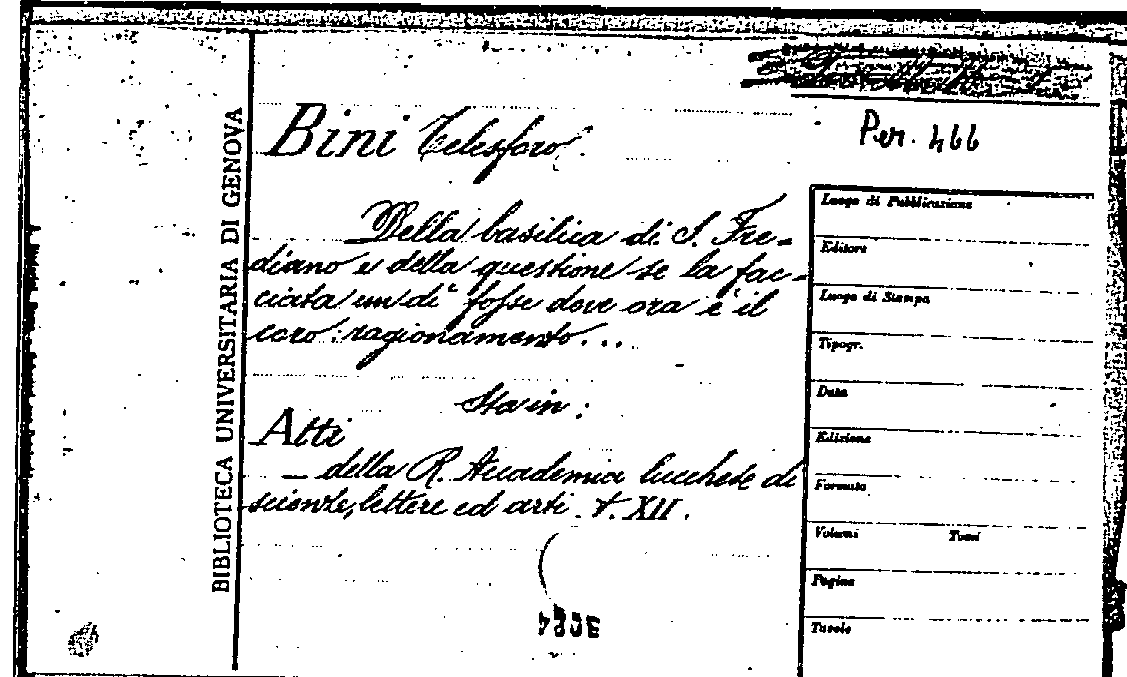 BIBLIOTECA UNIVERSITARIA DI GENOVA
Per. 466
Bini Telesforo.
Della basilica di S. Fre-
diano e della questione se la fac-
ciata un di fosse dove ora è il
coro: ragionamento...
Sta in:
Atti
— della R. Accademia lucchese di
scienze, lettere ed arti. t. XII.
Luogo di Pubblicazione
Editore
Luogo di Stampa
Tipogr.
Data
Edizione
Formato
Volumi Tomi
Pagine
Tavole